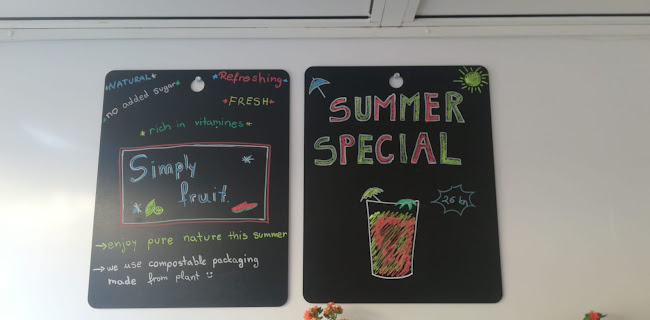 *NATURAL*
*Refreshing*
*no added sugar*
*FRESH*
*rich in vitamines*
Simply
fruit.
→enjoy pure nature this summer
→we use compostable packaging
made from plant
SUMMER
SPECIAL